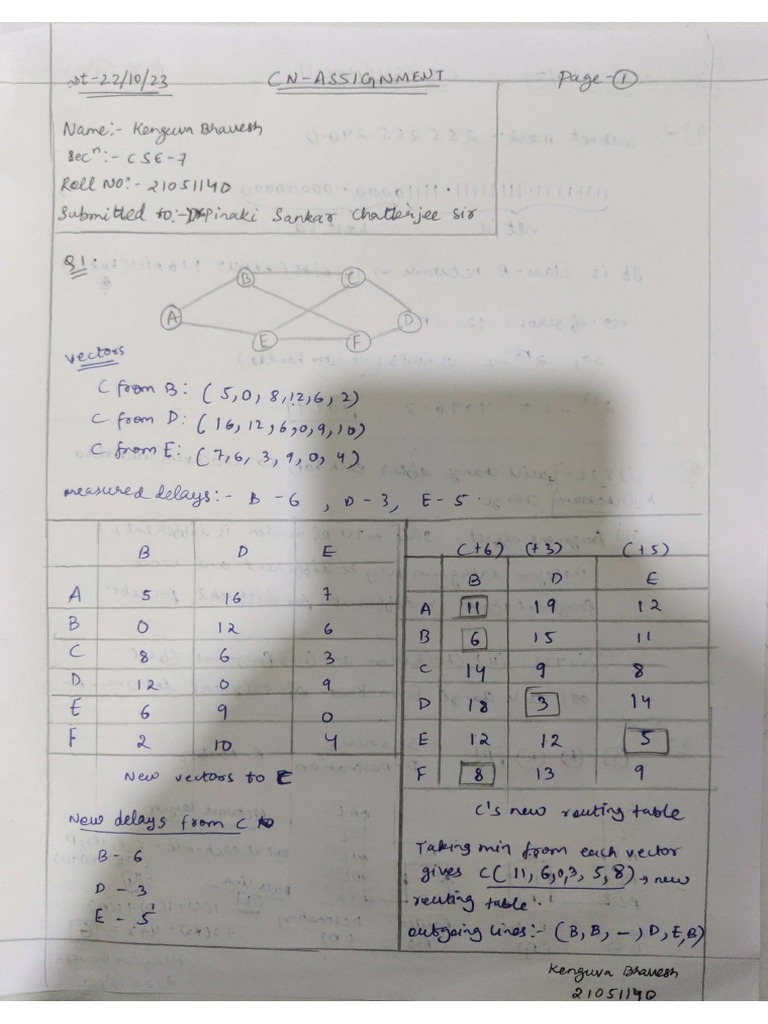 Dt-22/10/23 CN-ASSIGNMENT Page-①
Name:- Kenguva Bhavesh
Secⁿ:- CSE-7
Roll No:- 21051140
Submitted to:- Dr Pinaki Sankar Chatterjee Sir
Q1:
B C
A D
E F
Vectors
C from B: (5,0,8,12,6,2)
C from D: (16,12,6,0,9,10)
C from E: (7,6,3,9,0,4)
measured delays:- B-6, D-3, E-5.
B D E
A 5 16 7
B 0 12 6
C 8 6 3
D 12 0 9
E 6 9 0
F 2 10 4
New vectors to E
New delays from C to
B-6
D-3
E-5
(+6) (+3) (+5)
B D E
A 11 19 12
B 6 15 11
C 14 9 8
D 18 3 14
E 12 12 5
F 8 13 9
C's new routing table
Taking min from each vector
gives C(11,6,0,3,5,8) → new
routing table.
outgoing lines:- (B,B,-,D,E,B)
Kenguva Bhavesh
21051140